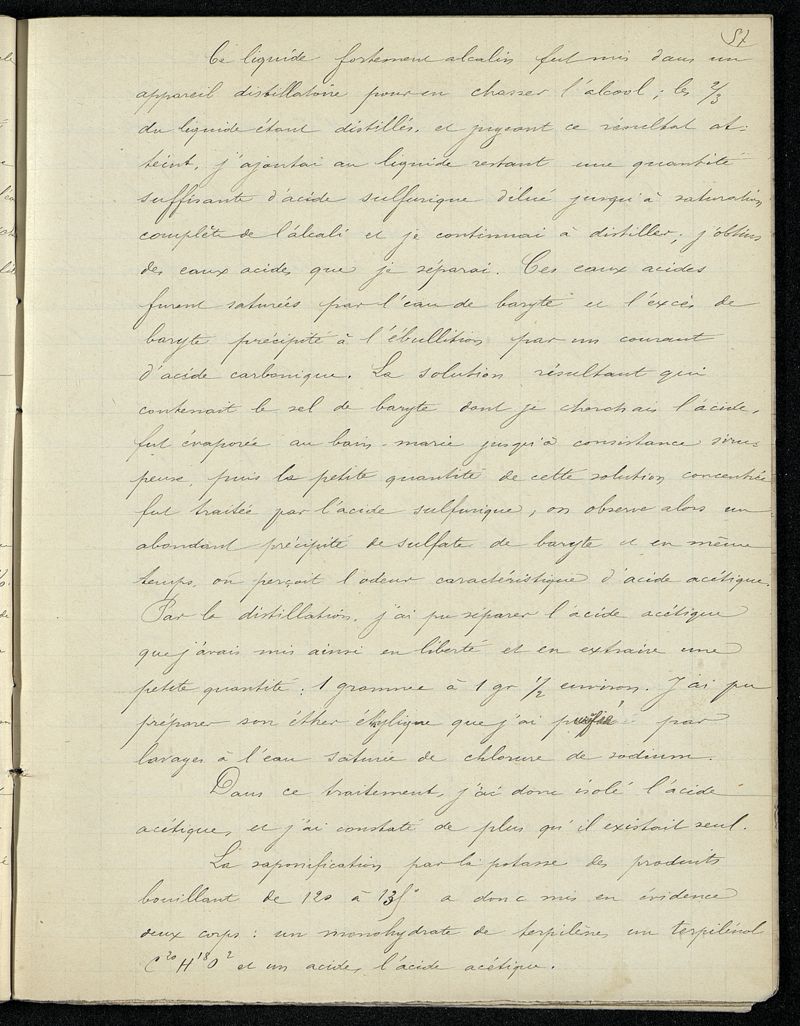 57
Ce liquide fortement alcalin fut mis dans un
appareil distillatoire pour en chasser l'alcool; les 2/3
du liquide étant distillés, et jugeant ce résultat at-
teint, j'ajoutai au liquide restant une quantité
suffisante d'acide sulfurique dilué jusqu'à saturation
complète de l'alcali et je continuai à distiller; j'obtins
des eaux acides que je séparai. Ces eaux acides
furent saturées par l'eau de baryte et l'excès de
baryte précipité à l'ébullition par un courant
d'acide carbonique. La solution résultant qui
contenait le sel de baryte dont je cherchais l'acide,
fut évaporée au bain-marie jusqu'à consistance siru-
peuse, puis la petite quantité de cette solution concentrée
fut traitée par l'acide sulfurique, on observe alors un
abondant précipité de sulfate de baryte et en même
temps, on perçoit l'odeur caractéristique d'acide acétique.
Par la distillation, j'ai pu séparer l'acide acétique
que j'avais mis ainsi en liberté et en extraire une
petite quantité: 1 gramme à 1 gr 1/2 environ. J'ai pu
préparer son éther éthylique que j'ai purifié par
lavages à l'eau saturée de chlorure de sodium.
Dans ce traitement, j'ai donc isolé l'acide
acétique, et j'ai constaté de plus qu'il existait seul.
La saponification par la potasse des produits
bouillant de 120 à 135° a donc mis en évidence
deux corps: un monohydrate de terpilène, un terpilénol
C²⁰H¹⁸O² et un acide, l'acide acétique.